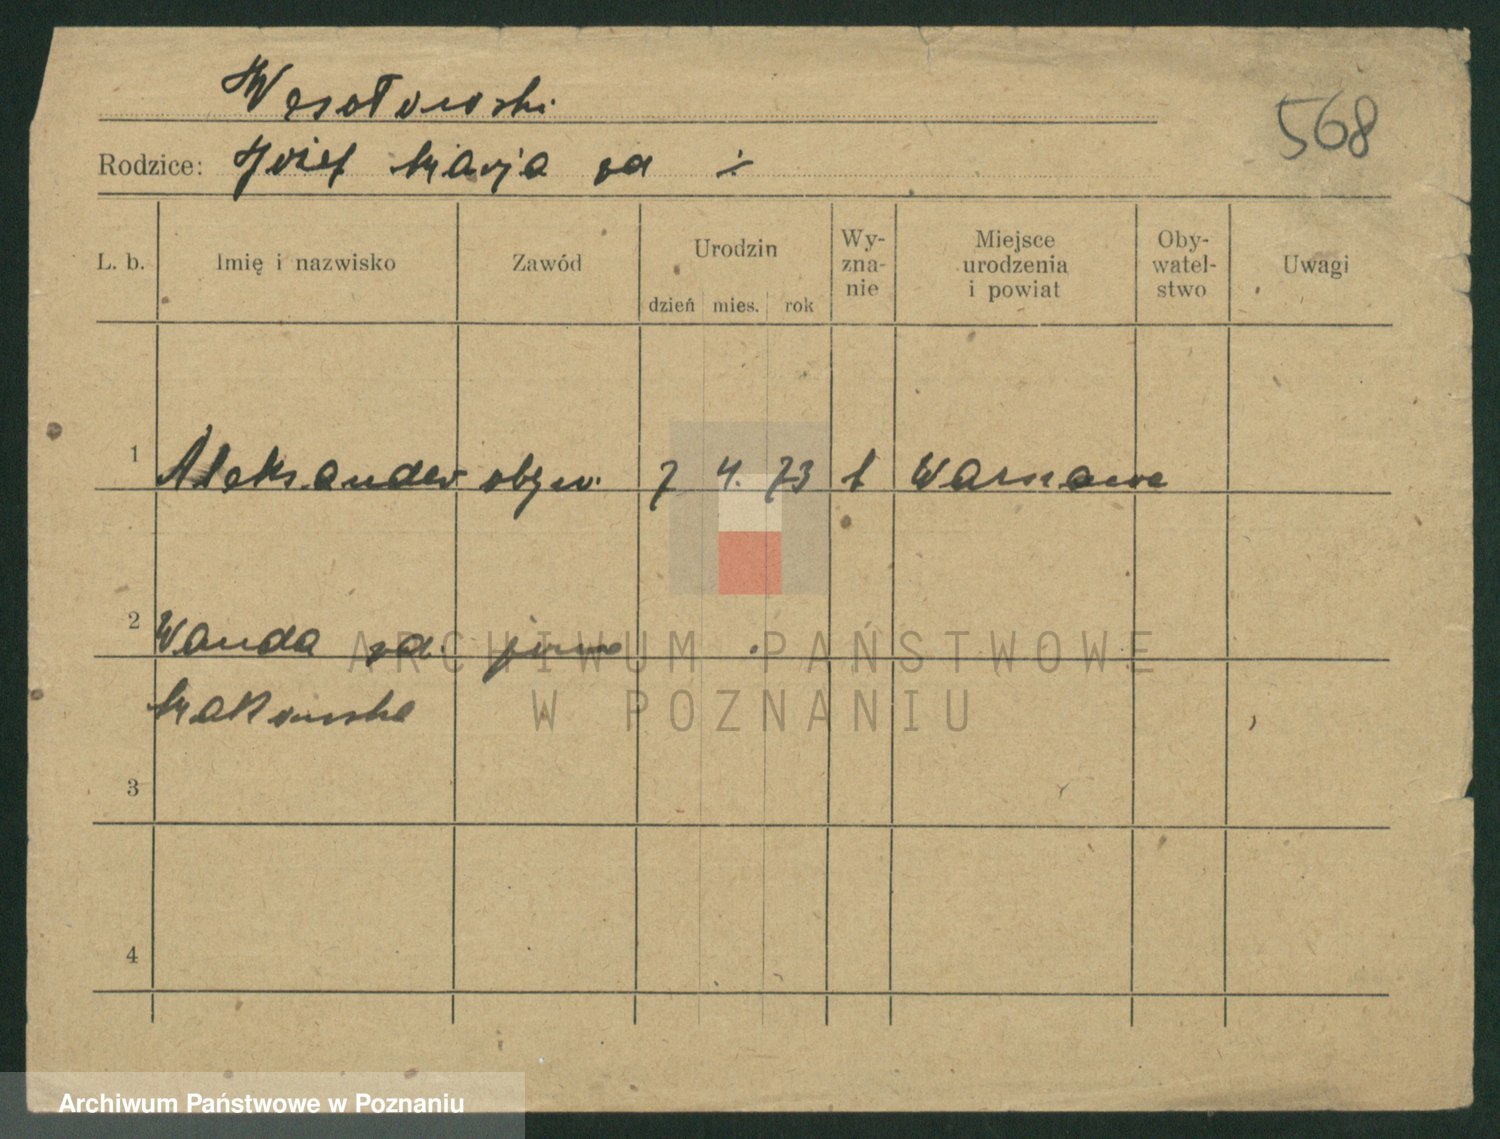 Wesołowski
568
Rodzice: Józef Marja zd ÷
L. b. Imię i nazwisko Zawód Urodzin Wy-zna-nie Miejsce urodzenia i powiat Oby-watel-stwo Uwagi
dzień mies. rok
1 Aleksander obyw. 7 4. 73 Warszawa
2 Wanda zd.
Makowska
3
4
ARCHIWUM PAŃSTWOWE
W POZNANIU
Archiwum Państwowe w Poznaniu